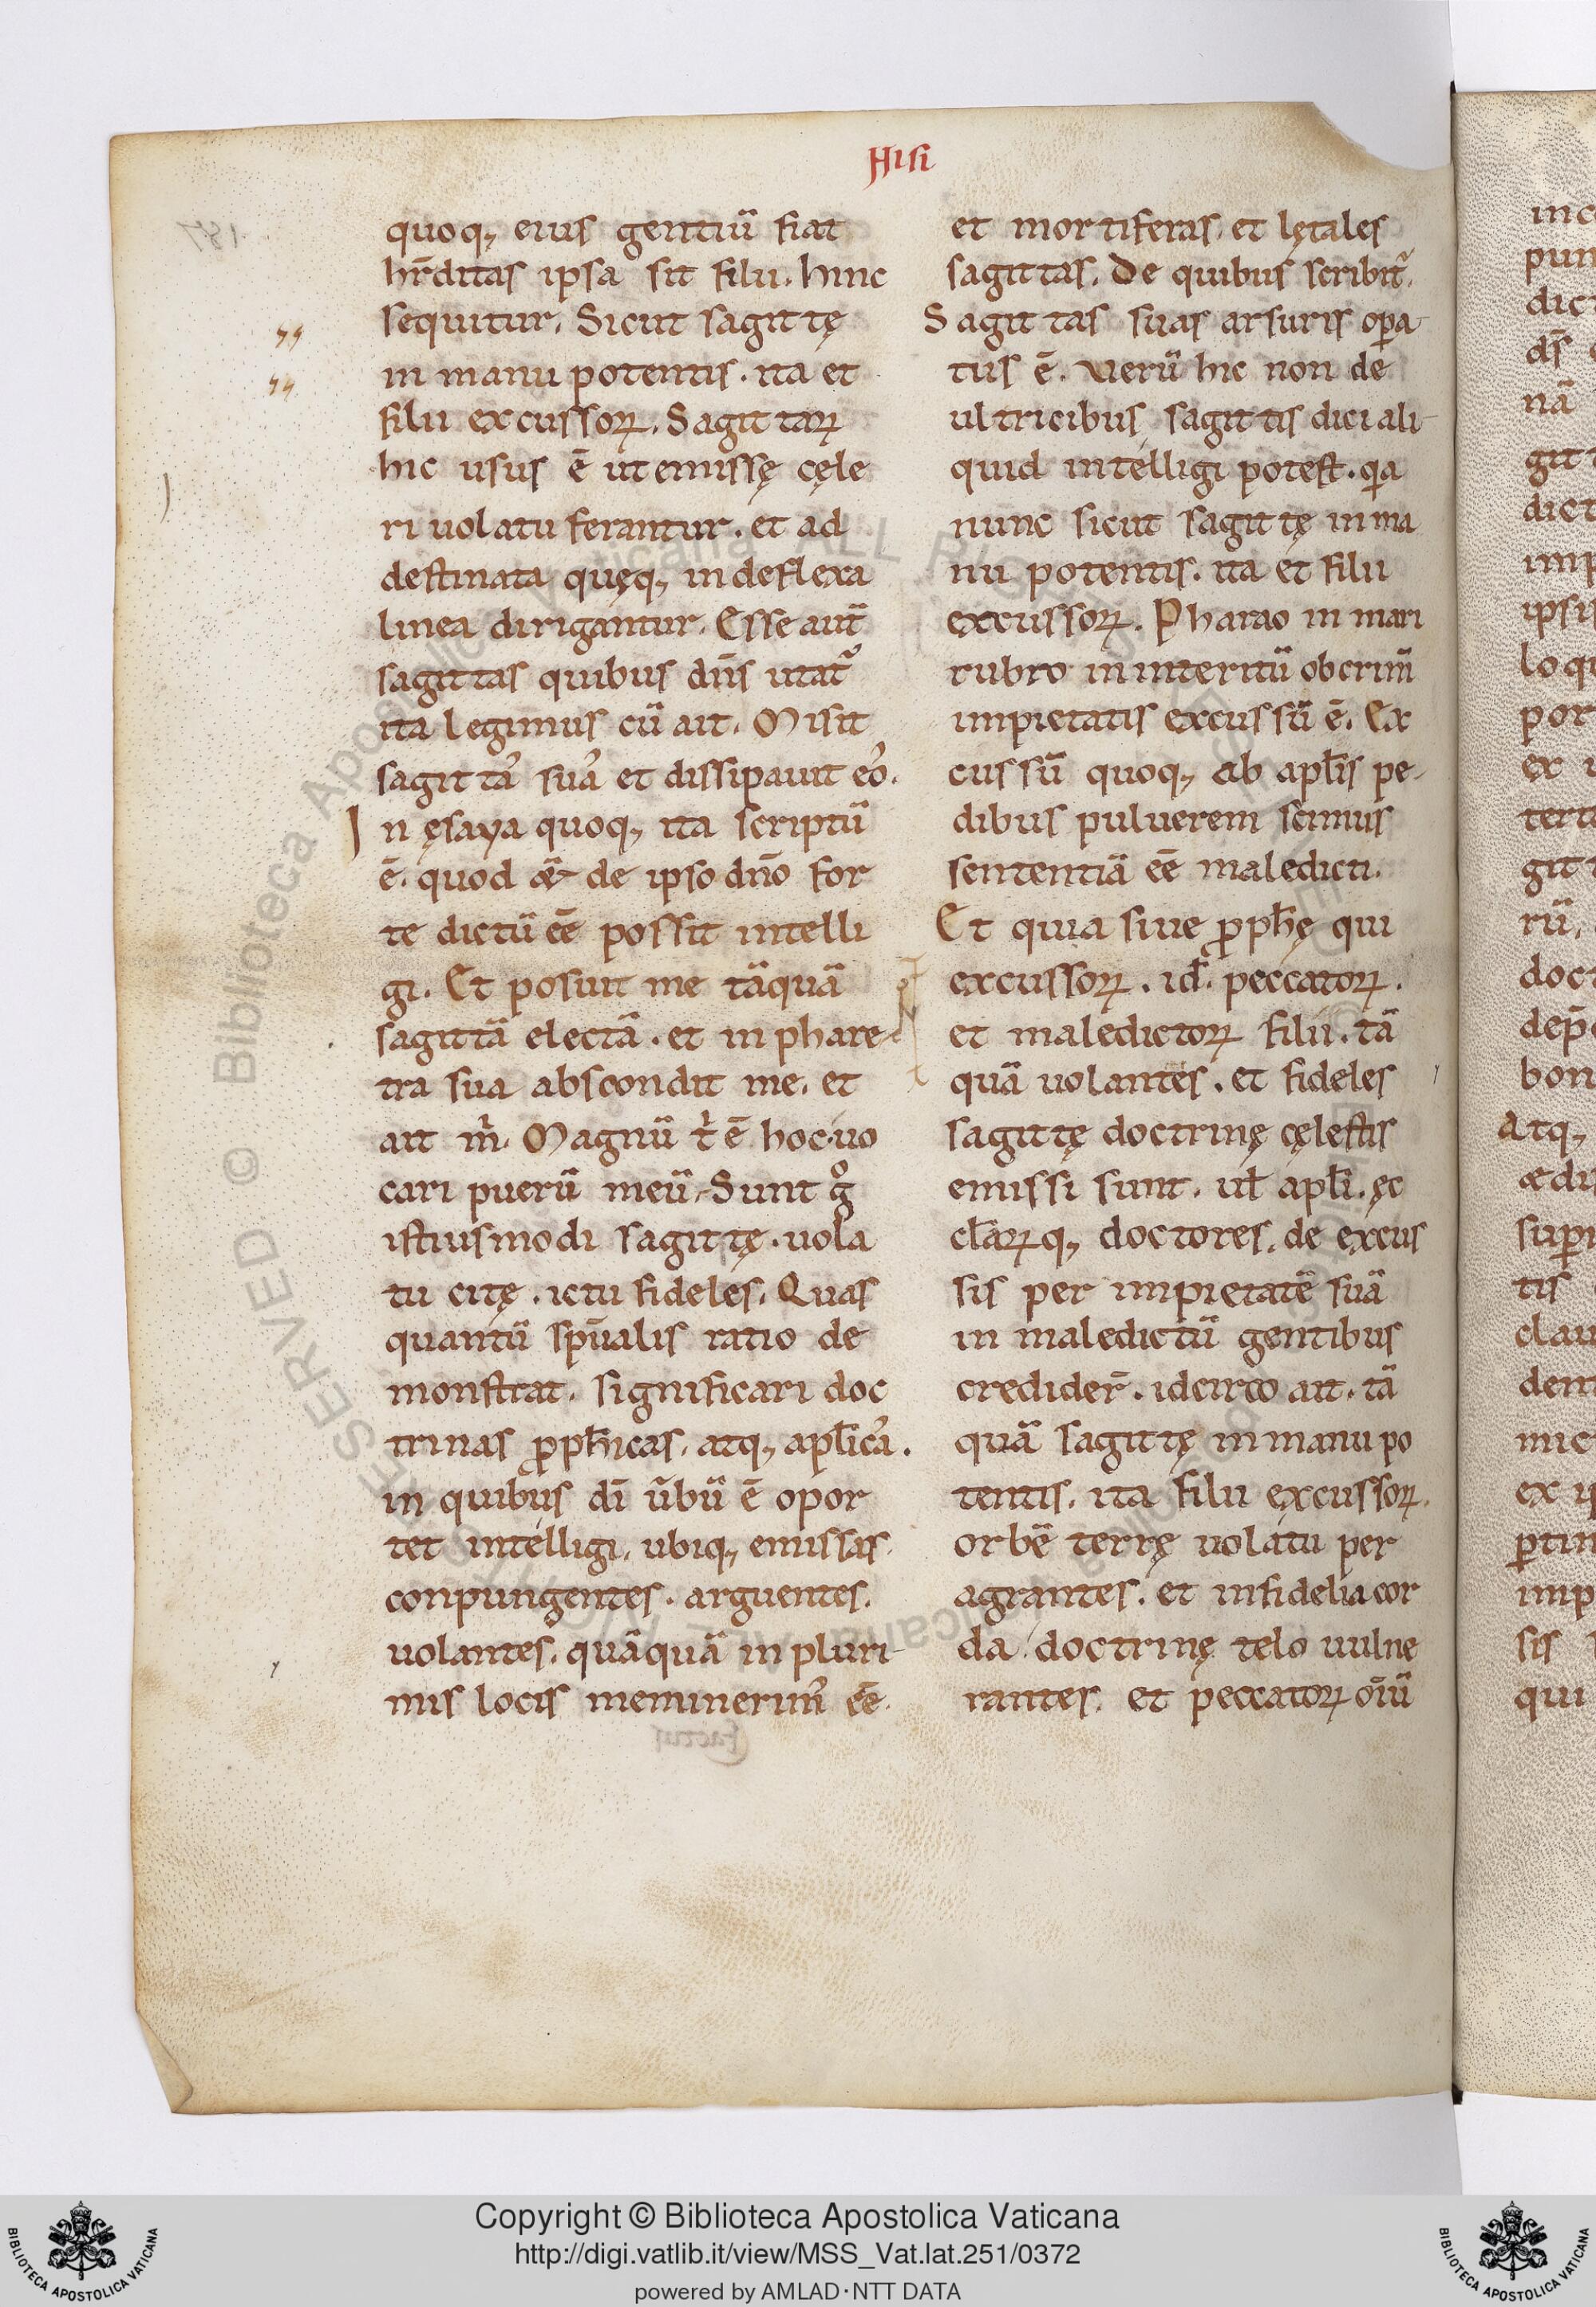 Hisi
quoq, eius gentiū fiat
hr̄ditas ipsa sit filii. hinc
sequitur. Sicut sagittę
in manu potentis. ita et
filii excussoꝝ. Sagittaꝝ
hic usus ē ut emissę cęle
ri uolatu ferantur. et ad
destinata quęq, indeflexa
linea dirigantur. Esse aut̄
sagittas quibus dn̄s utat᷑
ita legimus cū ait. Misit
sagittaꝰ suaꝰ et dissipauit eoꝰ.
In ęsaya quoq, ita scriptū
ē. quod & de ipso dn̄o for
te dictū eē possit intelli
gi. Et posuit me tāquā
sagittā electā. et in phare
tra sua abscondit me. et
ait m̄. Magnū t̄ ē hoc uo
cari puerū meū. Sunt gͦ
istiusmodi sagittę. uola
tu citę. ictu fideles. Quas
quantū sp̄ualis ratio de
monstrat. significari doc
trinas ꝓph̄icas. atq, apl̄icaꝰ.
in quibus dī ūbū ē opor
tet intelligi. ubiq, emissas.
conpungentes. arguentes.
uolantes. quāquā in pluri-
mis locis meminerimꝰ eē.
et mortiferas. et lętales
sagittas. De quibus scribit᷑.
Sagittas suas arsuris oꝑa-
tus ē. Uerū hic non de
ultricibus sagittis dici ali-
quid intelligi potest. qa
nunc sicut sagittę in ma
nu potentis. ita et filii
excussoꝝ. Pharao in mari
rubro in interitū ob crim̄
impietatis excussū ē. Ex
cussū quoq, ab apl̄is pe-
dibus puluerem scimus
sententiā eē maledicti.
Et quia siue ꝓph̄ę qui
excussoꝝ. id̄. peccatoꝝ.
et maledictoꝝ filii. tā
quā uolantes. et fideles
sagittę doctrinę cęlestis
emissi sunt. ul̄ apl̄i. ęc
cl̄aꝝq, doctores. de excus
sis per impietatē suā
in maledictū gentibus
credider̄. idcirco ait. tā
quā sagittę in manu po
tentis. ita filii excussoꝝ.
orbē terrę uolatu per
agrantes. et infidelia cor
da doctrinę telo uulne
rantes. et peccatoꝝ oīū
Copyright © Biblioteca Apostolica Vaticana
http://digi.vatlib.it/view/MSS_Vat.lat.251/0372
powered by AMLAD·NTT DATA
BIBLIOTECA APOSTOLICA VATICANA
BIBLIOTECA APOSTOLICA VATICANA